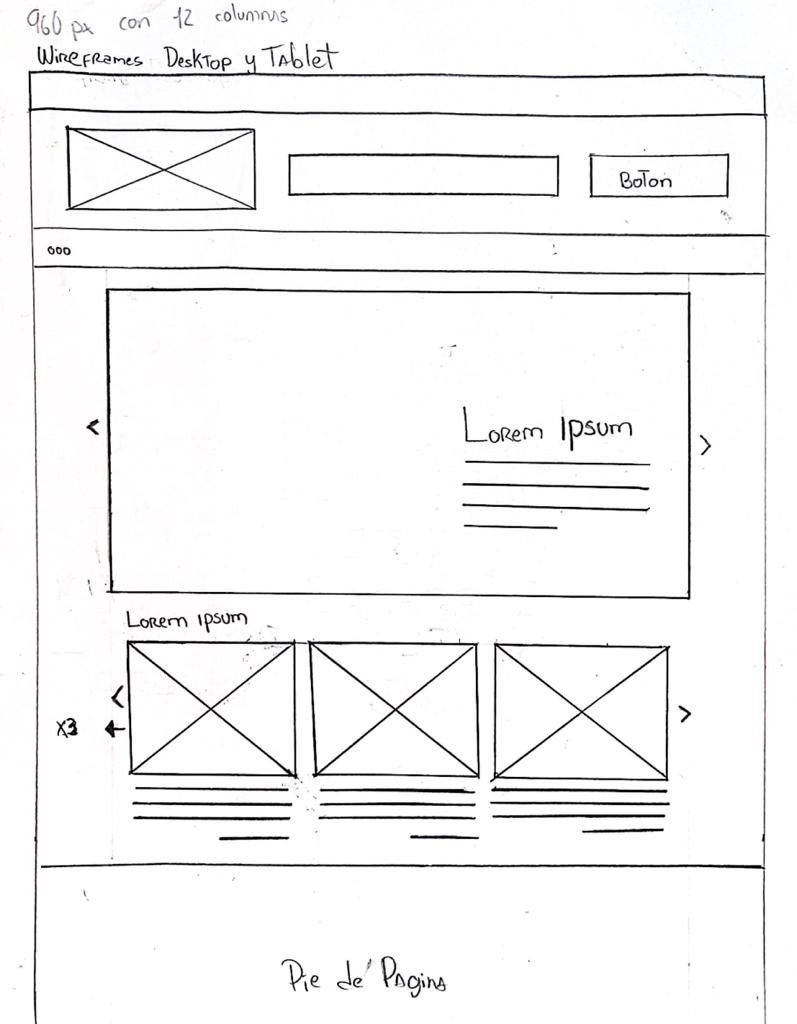 960 px con 12 columnas
Wireframes Desktop y Tablet
Boton
ooo
<
Lorem Ipsum
>
Lorem ipsum
<
>
X3 ←
Pie de Pagina